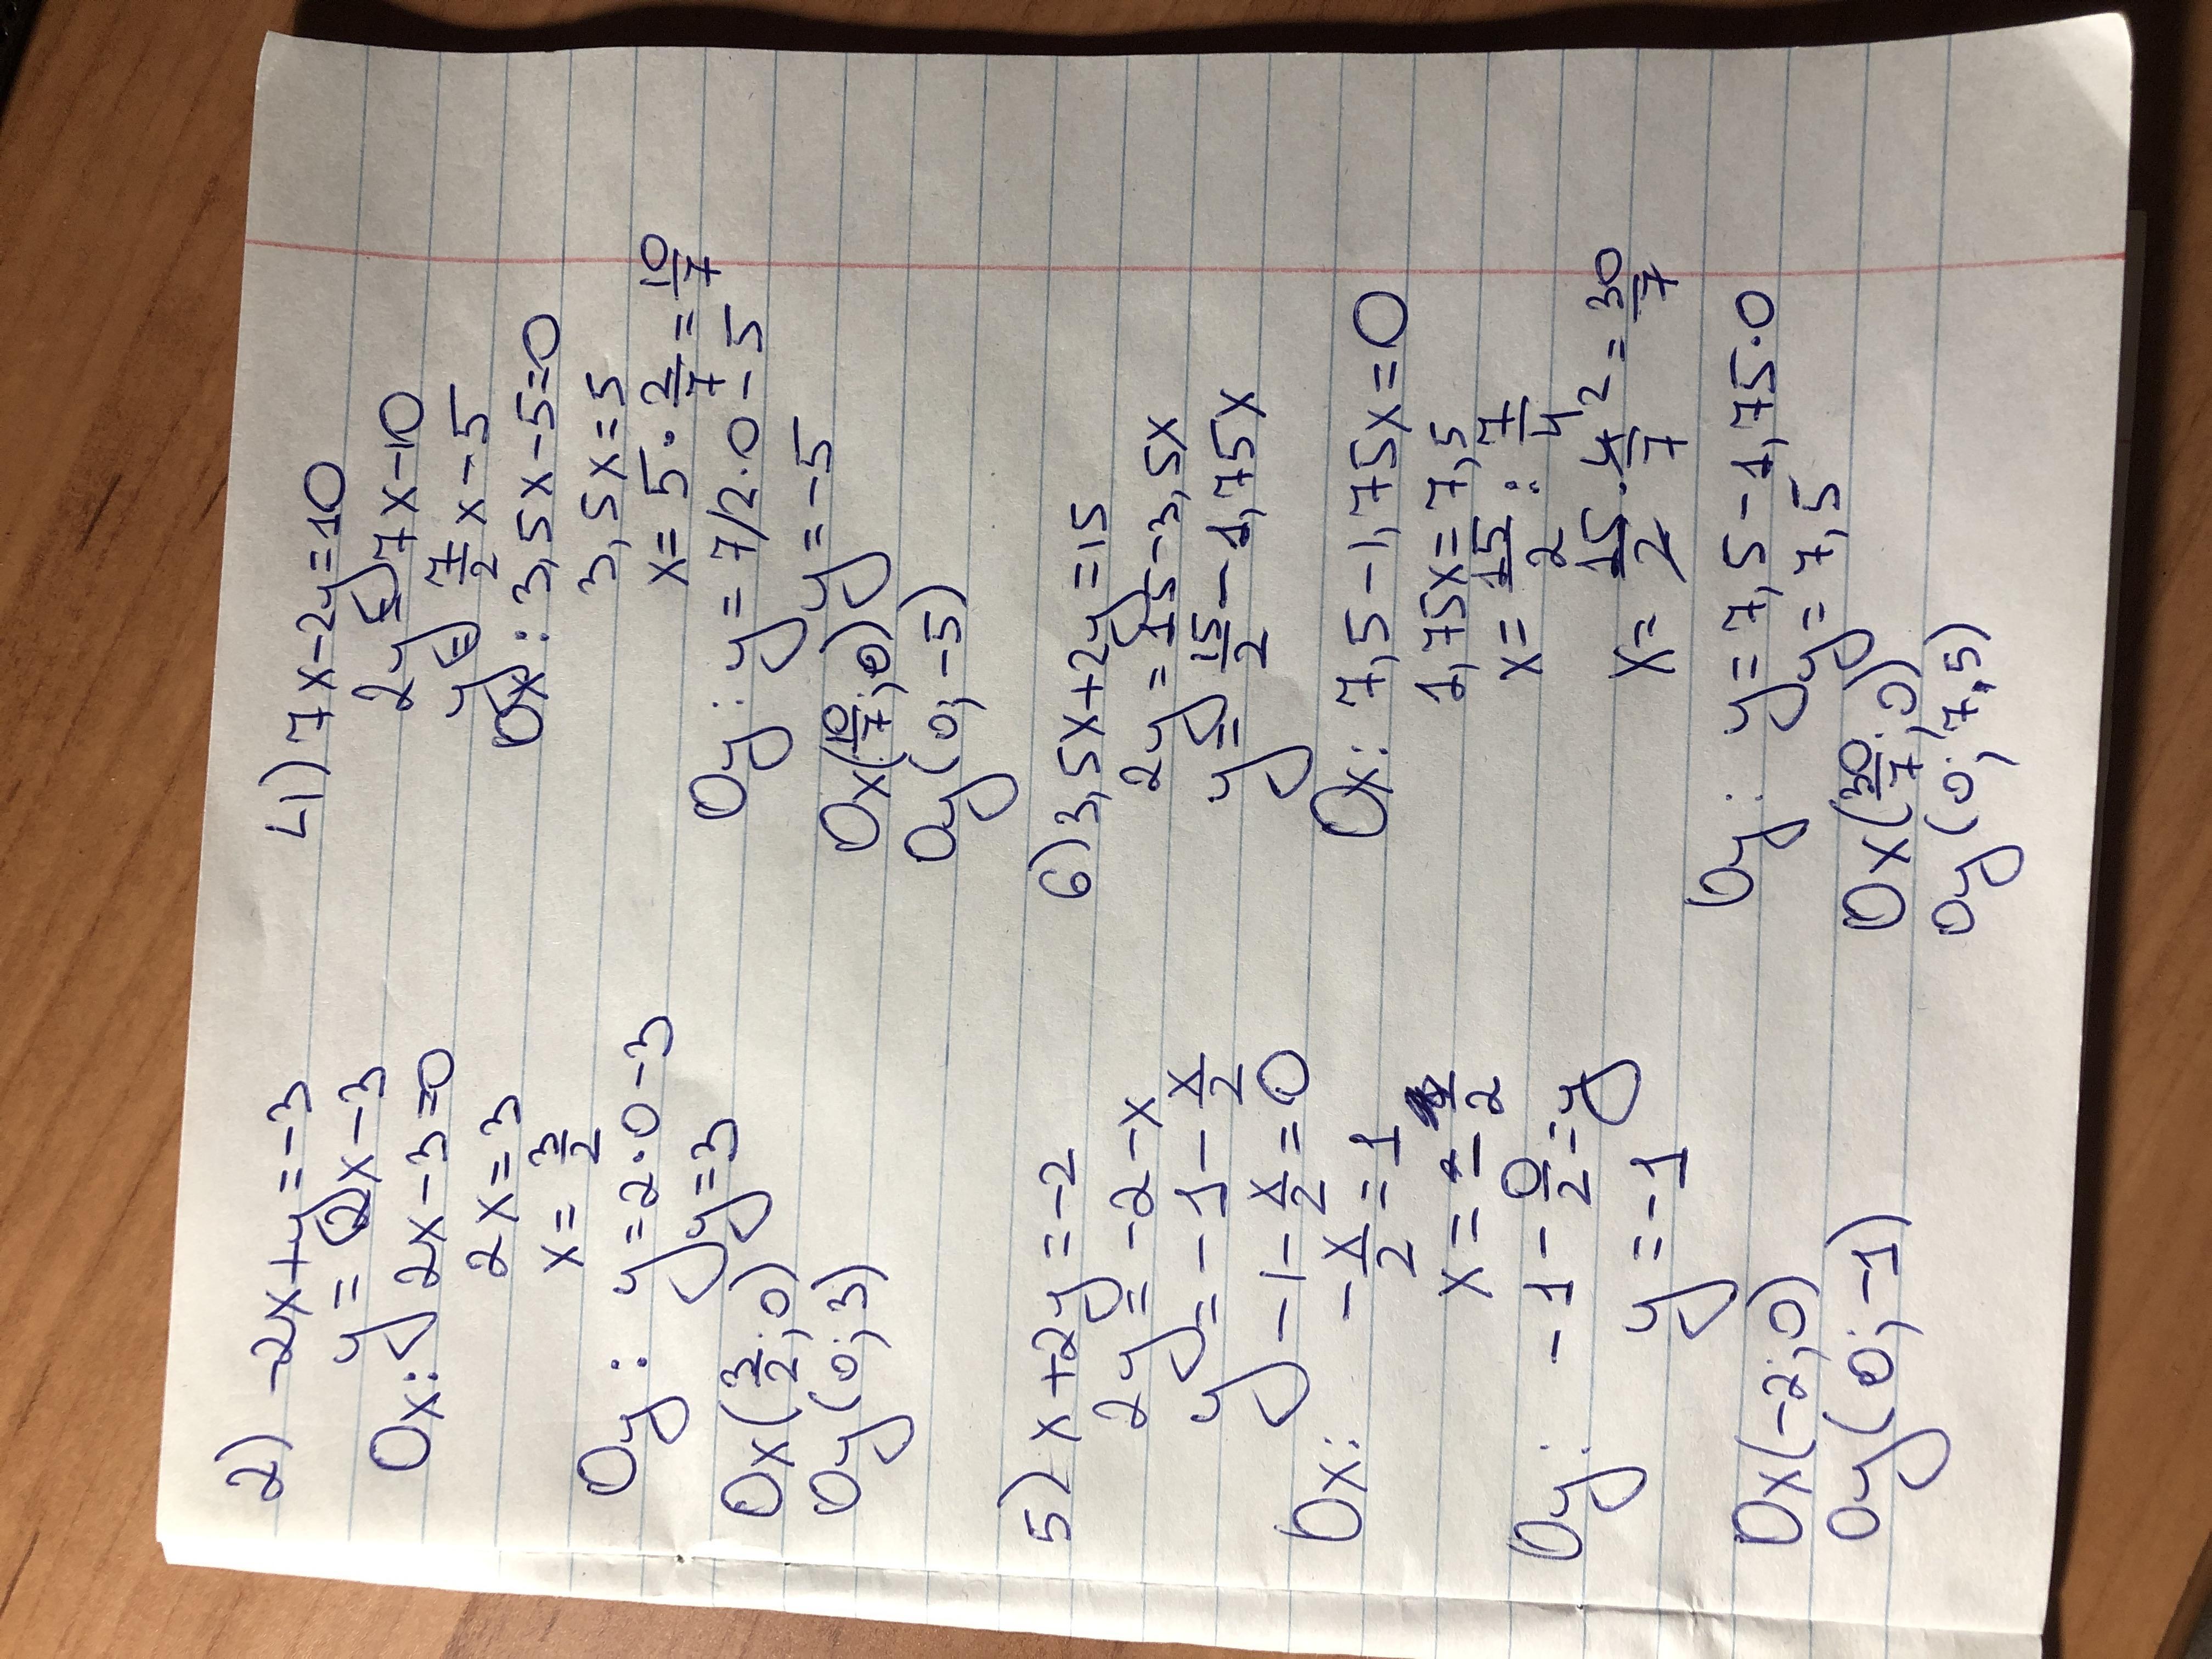 2) -2x+y=-3
y=2x-3
Ox: 2x-3=0
2x=3
x=3/2
Oy: y=2·0-3
y=3
Ox(3/2;0)
Oy(0;3)
4) 7x-2y=10
2y=7x-10
y=7/2x-5
Ox: 3,5x-5=0
3,5x=5
x=5·2/7=10/7
Oy: y=7/2·0-5
y=-5
Ox(10/7;0)
Oy(0;-5)
5) x+2y=-2
2y=-2-x
y=-1-x/2
Ox: -1-x/2=0
-x/2=1
x=-2
Oy: -1-0/2=y
y=-1
Ox(-2;0)
Oy(0;-1)
6) 3,5x+2y=15
2y=15-3,5x
y=15/2-1,75x
Ox: 7,5-1,75x=0
1,75x=7,5
x=15/2:7/4
x=15/2·4²/7=30/7
Oy: y=7,5-1,75·0
y=7,5
Ox(30/7;0)
Oy(0;7,5)